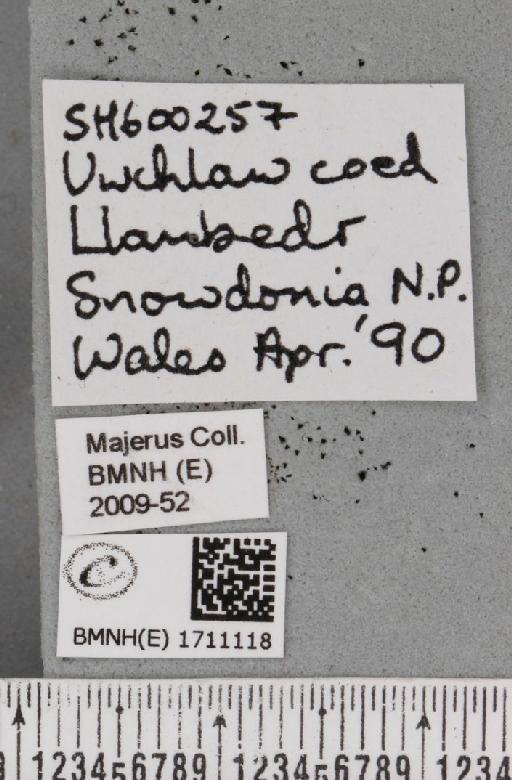 SH600257
Uwchlaw coed
Llanbedr
Snowdonia N.P.
Wales Apr. '90
Majerus Coll.
BMNH (E)
2009-52
C
BMNH(E) 1711118
123456789 123456789 1234